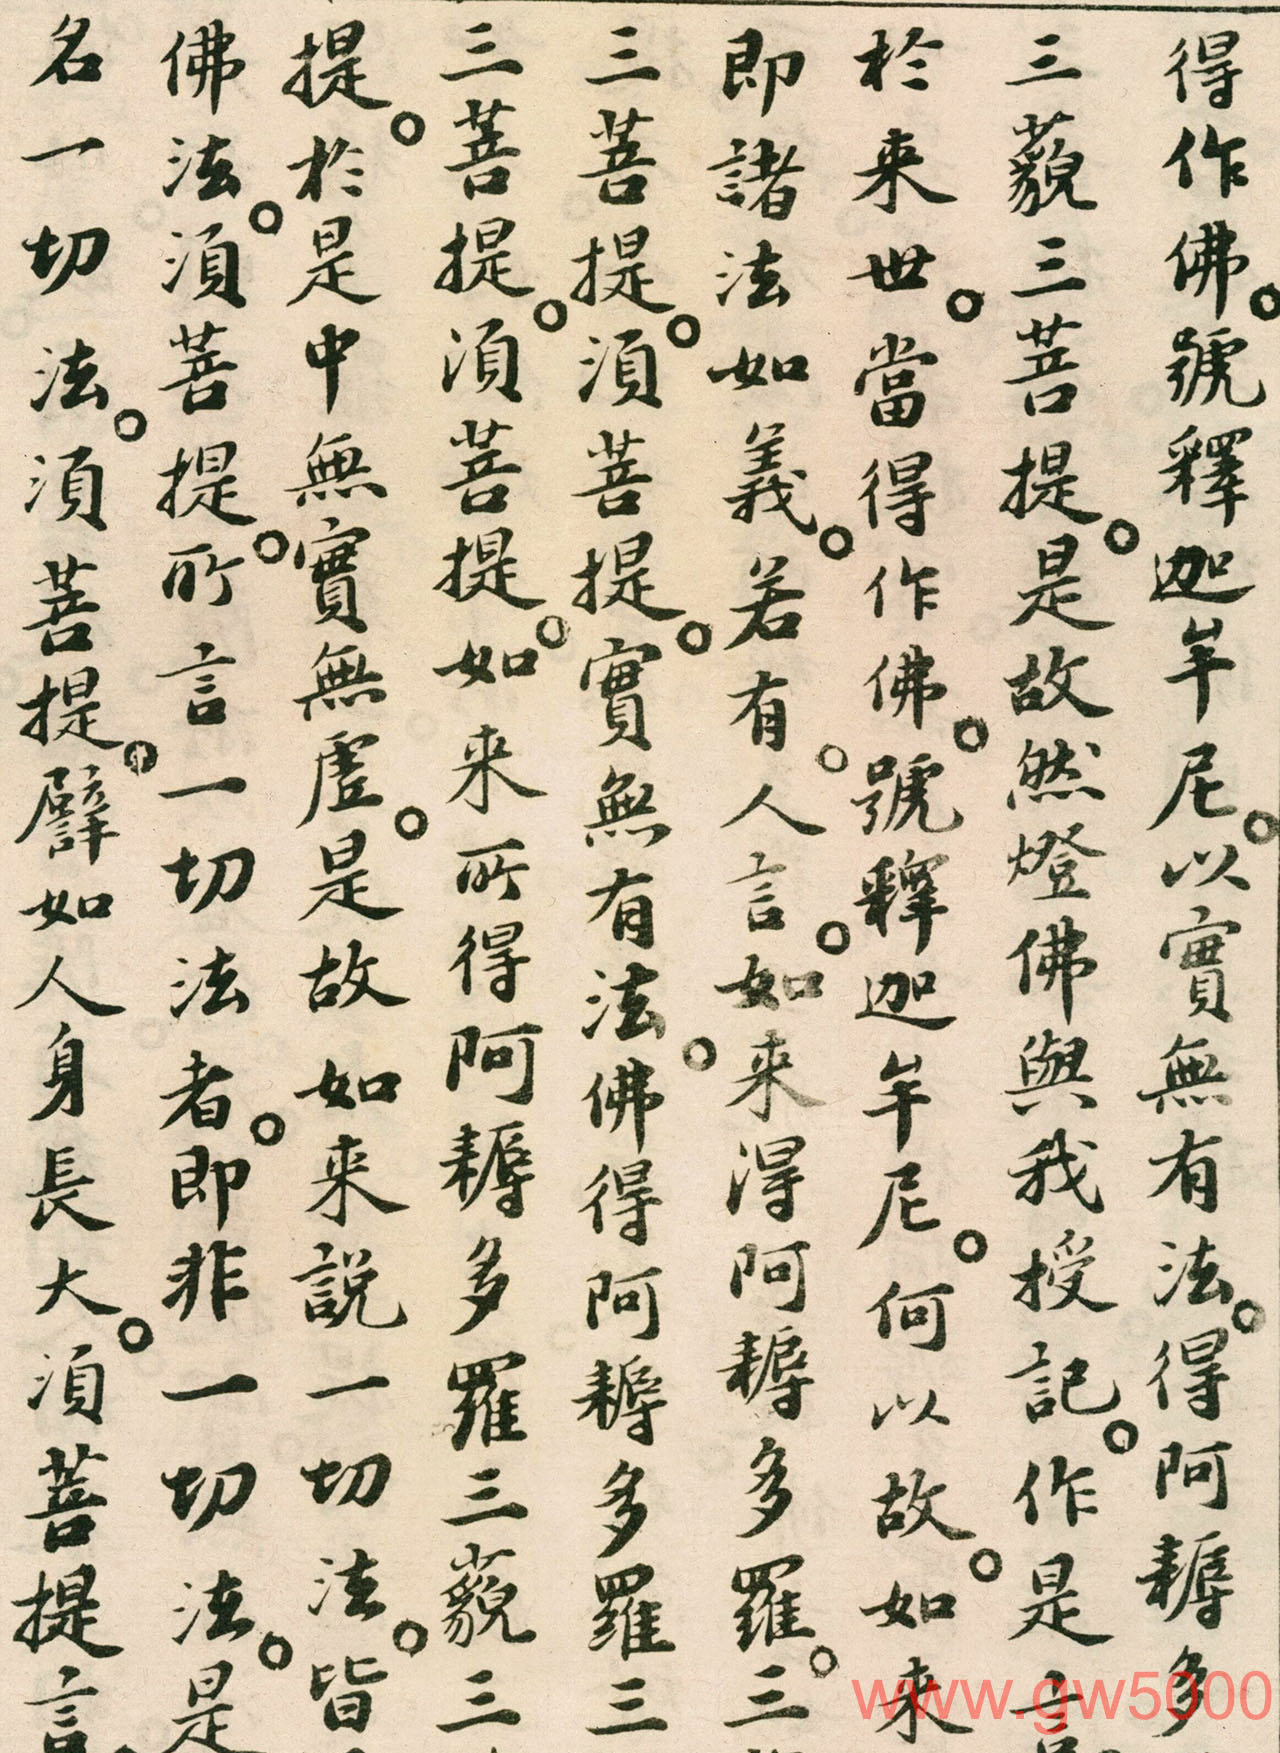 得作佛。號釋迦牟尼。以實無有法。得阿耨多
三藐三菩提。是故然燈佛與我授記。作是言
於来世。當得作佛。號釋迦牟尼。何以故。如来
即諸法如義。若有。人言。如来得阿耨多羅。三
三菩提。湏菩提。實無有法。佛得阿耨多羅三
三菩提。湏菩提。如来所得阿耨多羅三藐三
提。於是中無實無虛。是故如来說一切法。皆
佛法。湏菩提。所言一切法者。即非一切法。是
名一切法。湏菩提。譬如人身長大。湏菩提言
www.gw5000